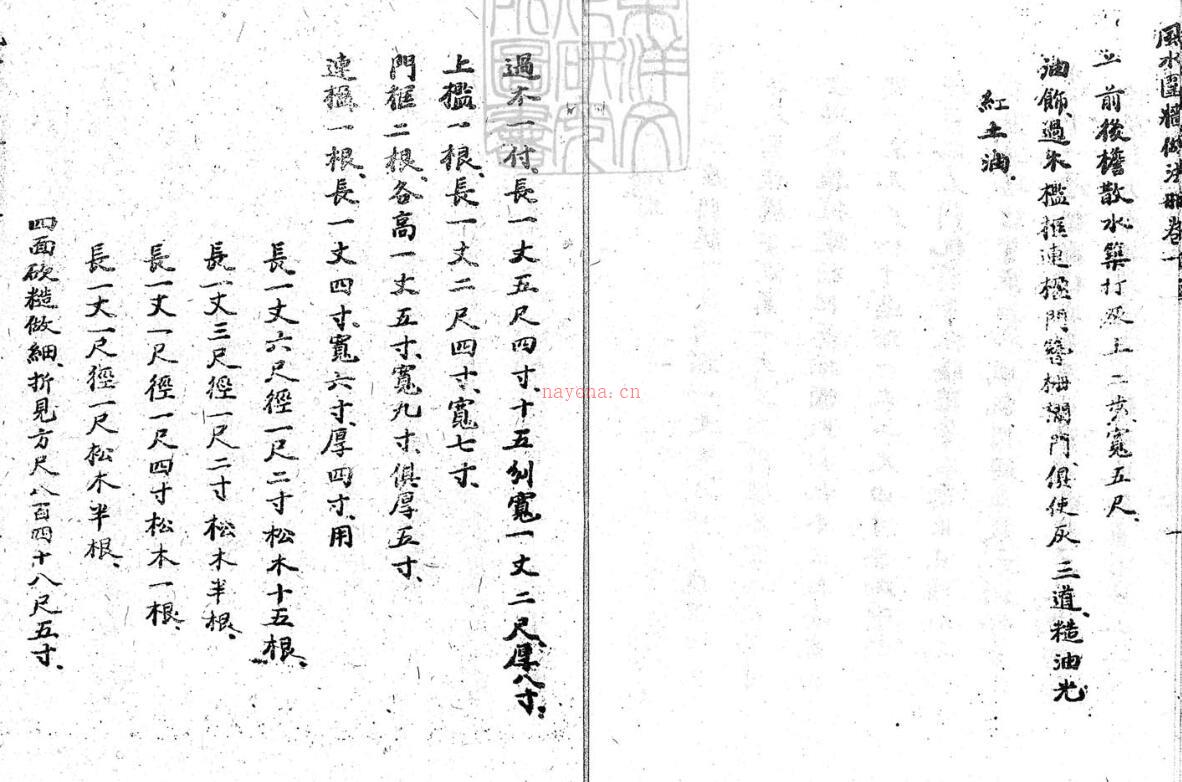 風水圍牆做法冊卷十
前後檐散水築打灰土二步寬五尺
油飾過木檻框連楹門簪柵欄門俱使灰三道糙油光
紅土油
過木一付長一丈五尺四寸十五列寬一丈二尺厚八寸
上檻一根長一丈二尺四寸寬七寸
門框二根各高一丈五寸寬九寸俱厚五寸
連楹一根長一丈四寸寬六寸厚四寸用
長一丈六尺徑一尺二寸松木十五根
長一丈三尺徑一尺二寸松木半根
長一丈一尺徑一尺四寸松木一根
長一丈一尺徑一尺松木半根
四面砍糙做細折見方尺八百四十八尺五寸
nayona.cn